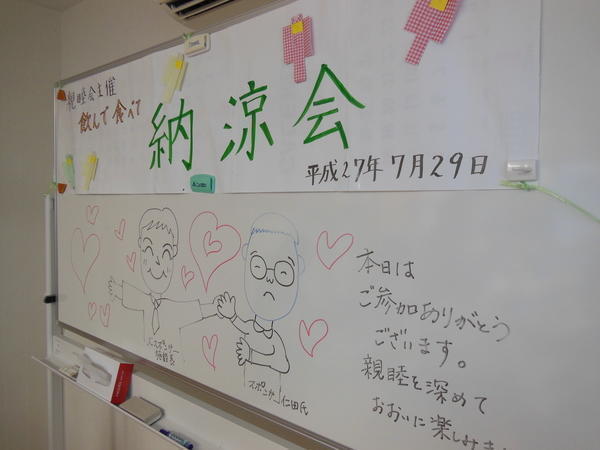 親睦会主催
飲んで食べて
納涼会
平成27年7月29日
本日は
ご参加ありがとう
ございます。
親睦を深めて
おおいに楽しみま
スポンサー
スポンサー 仁田氏